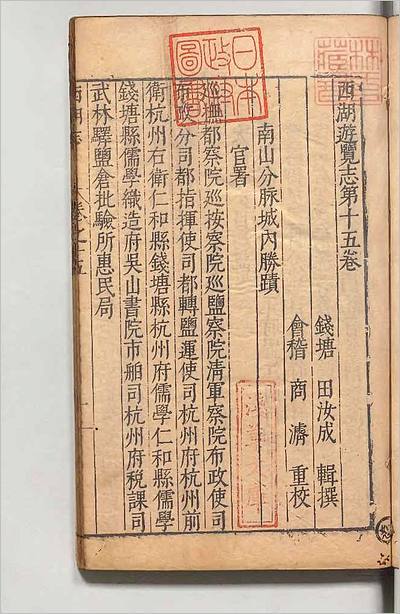 西湖遊覽志第十五卷
錢塘 田汝成 輯撰
會稽 商濬 重校
南山分脉城內勝蹟
官署
巡撫都察院巡按察院巡鹽察院清軍察院布政使司
布政分司都指揮使司都轉鹽運使司杭州府杭州前
衛杭州右衛仁和縣錢塘縣杭州府儒學仁和縣儒學
錢塘縣儒學織造府吳山書院市舶司杭州府稅課司
武林驛鹽倉批驗所惠民局
日本
政
圖書
林
藏
淺草文庫
卷之十五